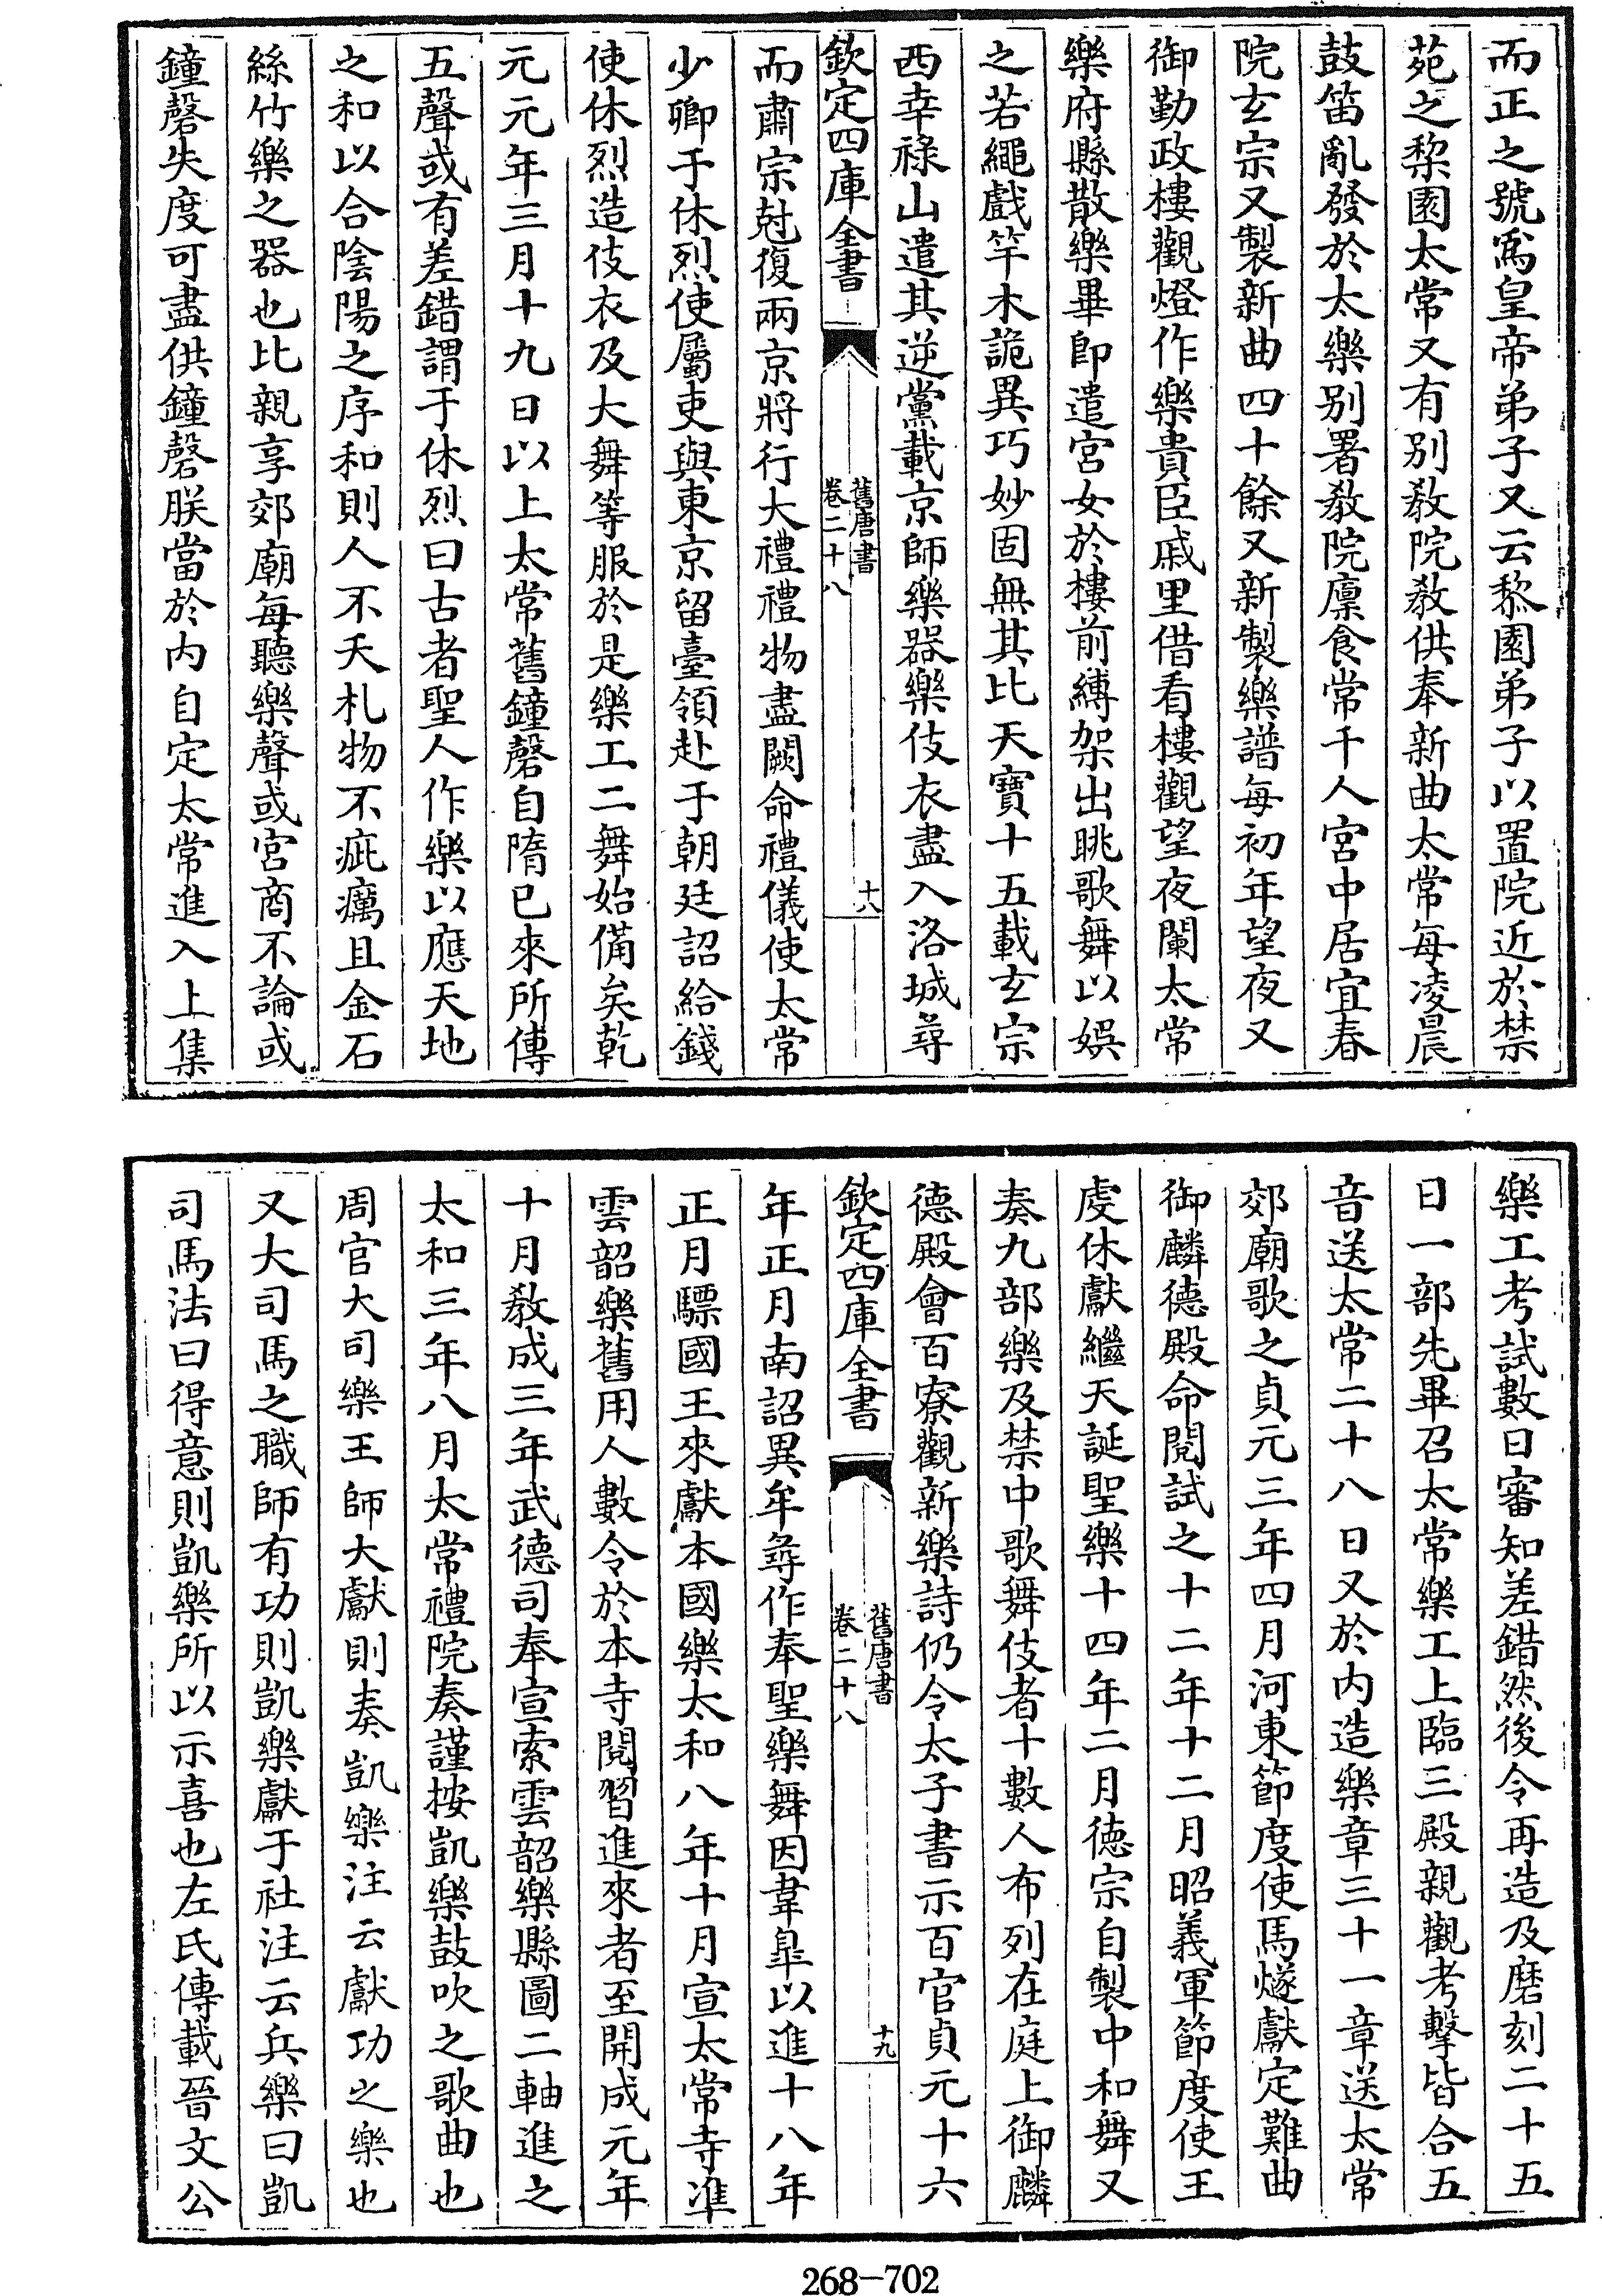 而正之號爲皇帝弟子又云黎園弟子以置院近於禁
苑之棃園太常又有别敎院敎供奉新曲太常每凌晨
鼓笛亂發於太樂别署敎院廪食常千人宫中居宜春
院玄宗又製新曲四十餘又新製樂譜每初年望夜又
御勤政樓觀燈作樂貴臣戚里借看樓觀望夜闌太常
樂府縣散樂畢即遣宫女於樓前縛架出眺歌舞以娱
之若繩戲竿木詭異巧妙固無其比天寶十五載玄宗
西幸祿山遣其逆黨載京師樂器樂伎衣盡入洛城尋
欽定四庫全書
舊唐書
卷二十八
十八
而肅宗尅復兩京將行大禮禮物盡闕命禮儀使太常
少卿于休烈使屬吏與東京留臺領赴于朝廷詔給錢
使休烈造伎衣及大舞等服於是樂工二舞始備矣乾
元元年三月十九日以上太常舊鐘磬自隋已來所傳
五聲或有差錯謂于休烈曰古者聖人作樂以應天地
之和以合陰陽之序和則人不夭札物不疵癘且金石
絲竹樂之器也比親享郊廟每聽樂聲或宫商不論或
鐘磬失度可盡供鐘磬朕當於内自定太常進入上集
樂工考試數日審知差錯然後令再造及磨刻二十五
日一部先畢召太常樂工上臨三殿親觀考擊皆合五
音送太常二十八日又於内造樂章三十一章送太常
郊廟歌之貞元三年四月河東節度使馬燧獻定難曲
御麟德殿命閱試之十二年十二月昭義軍節度使王
虔休獻繼天誕聖樂十四年二月德宗自製中和舞又
奏九部樂及禁中歌舞伎者十數人布列在庭上御麟
德殿會百寮觀新樂詩仍令太子書示百官貞元十六
欽定四庫全書
舊唐書
卷二十八
十九
年正月南詔異牟尋作奉聖樂舞因韋臯以進十八年
正月驃國王來獻本國樂太和八年十月宣太常寺準
雲韶樂舊用人數令於本寺閱習進來者至開成元年
十月敎成三年武德司奉宣索雲韶樂縣圖二軸進之
太和三年八月太常禮院奏謹按凱樂鼓吹之歌曲也
周官大司樂王師大獻則奏凱樂注云獻功之樂也
又大司馬之職師有功則凱樂獻于社注云兵樂曰凱
司馬法曰得意則凱樂所以示喜也左氏傳載晉文公
268-702